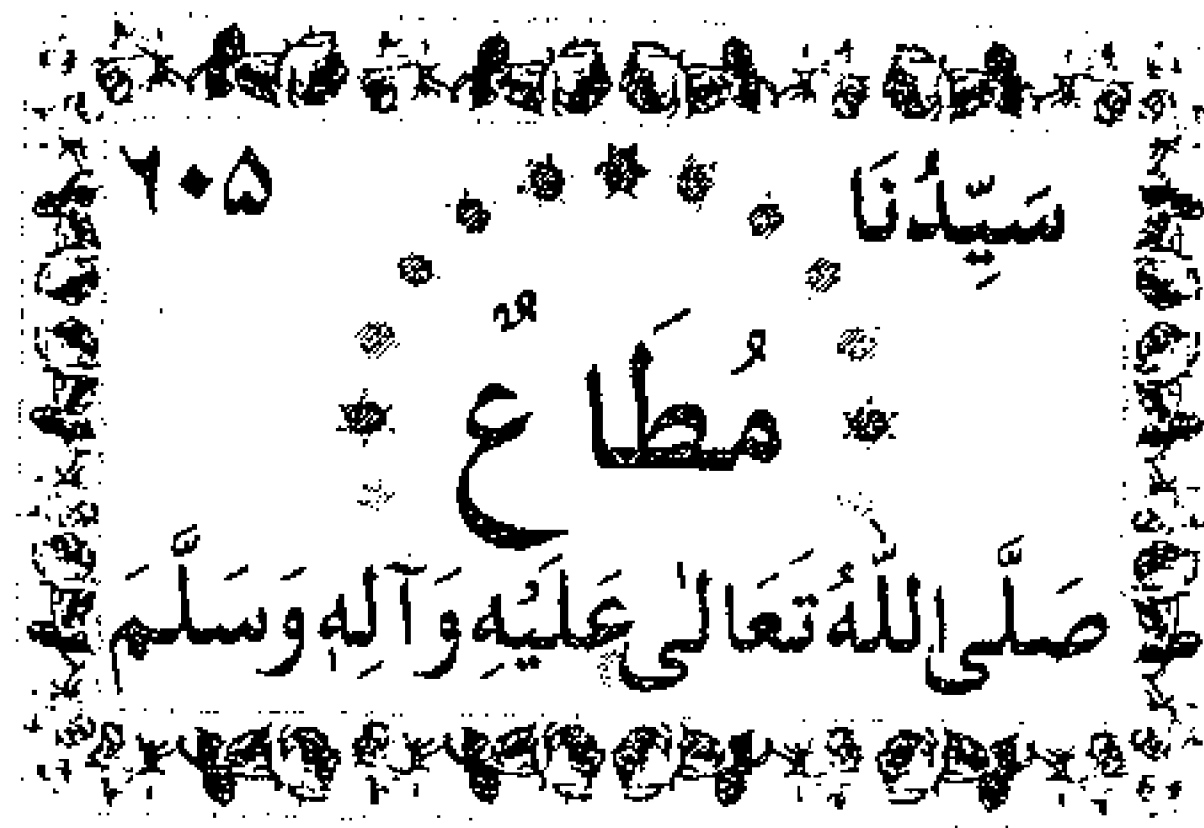 سَيِّدُنَا ۶۰۵
مُطَاعٌ
صَلَّى اللّٰهُ تَعَالٰى عَلَيْهِ وَآلِهٖ وَسَلَّمَ